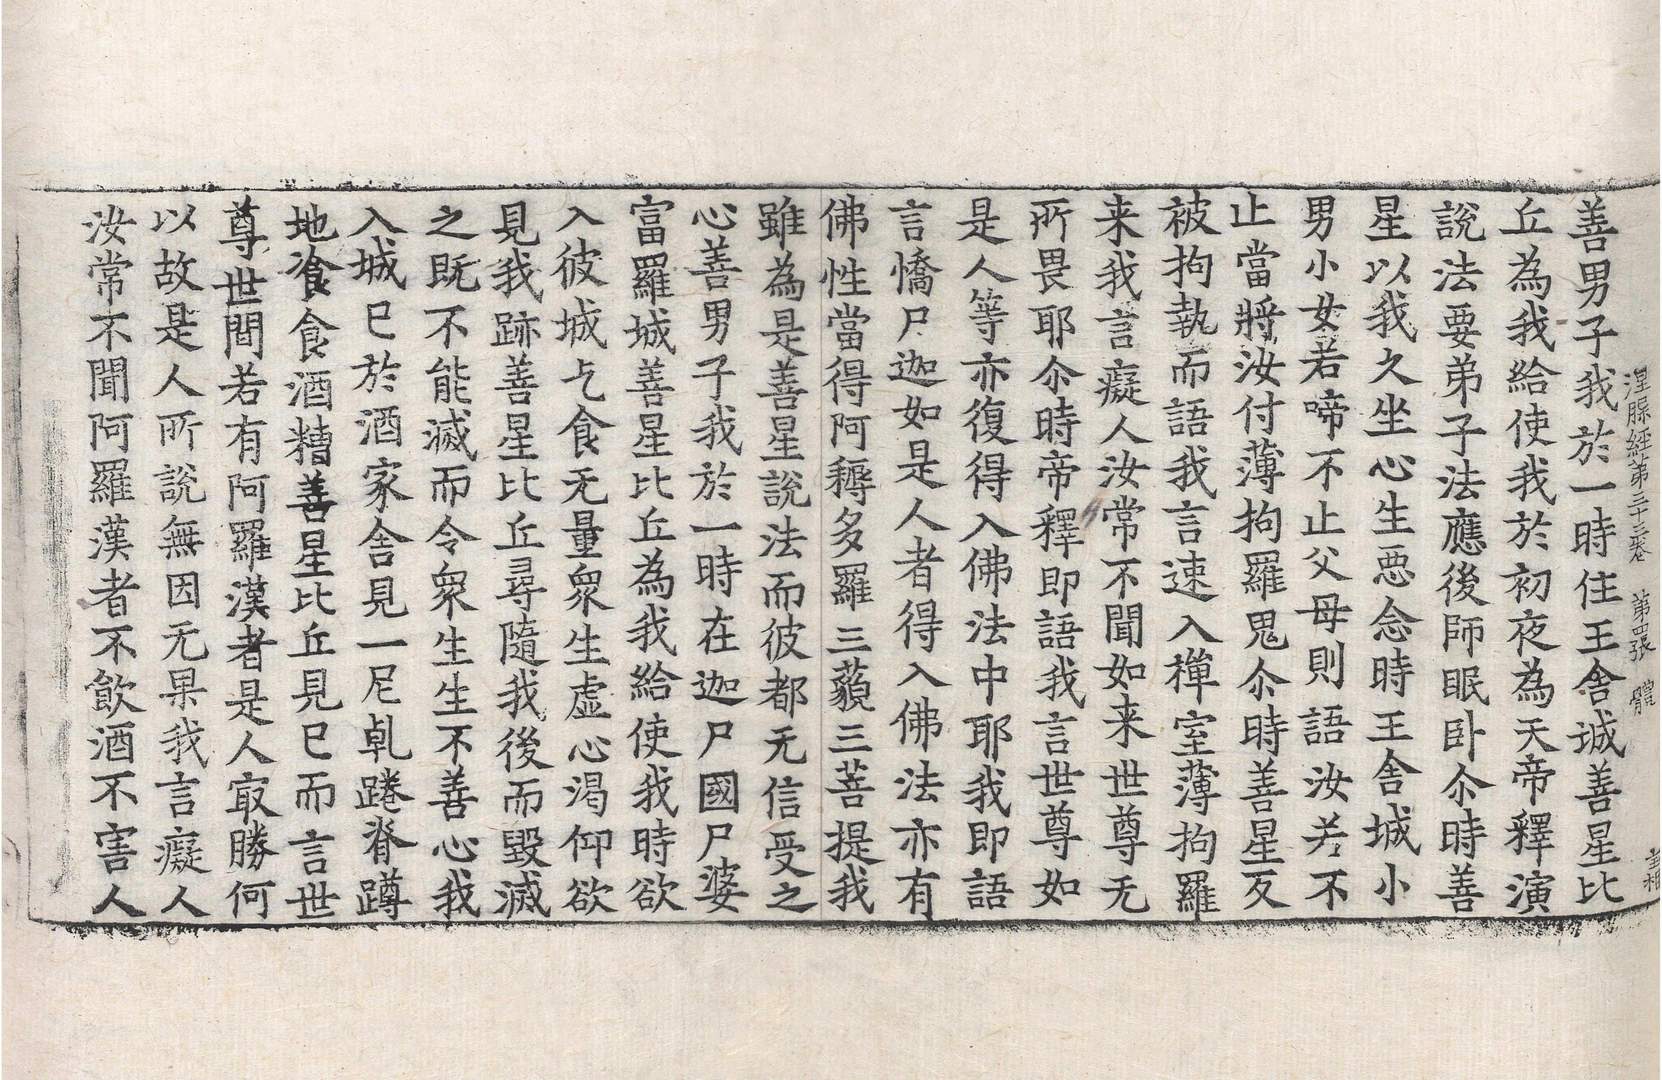 涅槃經第三十三卷 第四張 體
善男子我於一時住王舍城善星比
丘為我給使我於初夜為天帝釋演
說法要弟子法應後師眠卧尒時善
星以我久坐心生惡念時王舍城小
男小女若啼不止父母則語汝若不
止當將汝付薄拘羅鬼尒時善星反
被拘執而語我言速入禪室薄拘羅
来我言癡人汝常不聞如来世尊无
所畏耶尒時帝釋即語我言世尊如
是人等亦復得入佛法中耶我即語
言憍尸迦如是人者得入佛法亦有
佛性當得阿耨多羅三藐三菩提我
雖為是善星說法而彼都无信受之
心善男子我於一時在迦尸國尸婆
富羅城善星比丘為我給使我時欲
入彼城乞食无量衆生虛心渴仰欲
見我跡善星比丘尋隨我後而毀滅
之既不能滅而令衆生生不善心我
入城已於酒家舍見一尼乹踡脊蹲
地飡食酒糟善星比丘見已而言世
尊世間若有阿羅漢者是人㝡勝何
以故是人所說無因无果我言癡人
汝常不聞阿羅漢者不飲酒不害人